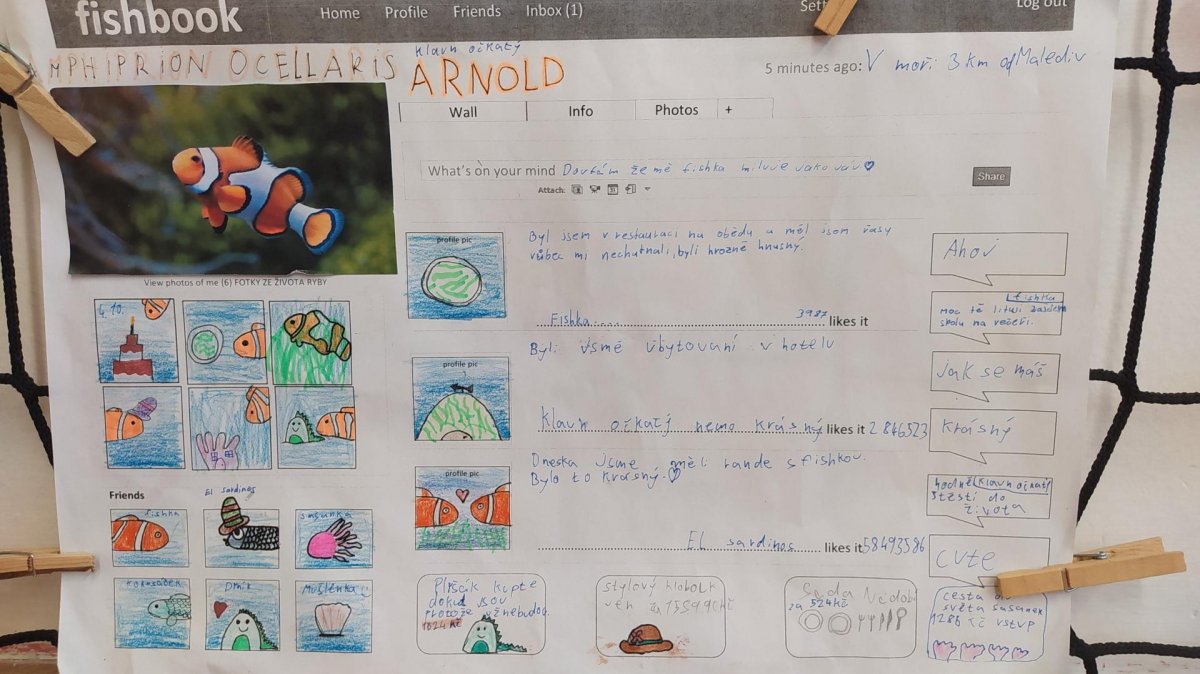 fishbook
Home Profile Friends Inbox (1)
Log out
AMPHIPRION OCELLARIS
klaun očkatý
ARNOLD
5 minutes ago: V moři 3 km od Malediv
Wall Info Photos +
What's on your mind Doufám že mě fishka miluje jako já
Attach:
Share
View photos of me (6) FOTKY ZE ŽIVOTA RYBY
4. 10.
Friends
fishka
El sardinos
sasanka
Drak
Mušlenka
profile pic
Byl jsem v restauraci na obědu a měl jsem řasy
vůbec mi nechutnali, byli hrozně hnusný.
Fishka 3987 likes it
profile pic
Byli jsme ubytovaní v hotelu
klaun očkatý nemo krásný likes it 2 846523
profile pic
Dneska jsme měli rande s fishkou.
Bylo to krásný.
El sardinos likes it 58493586
Ahoj
fishka
moc tě lituji
jak se máš
krásný
hodně klaun očkatý
štěstí do
života
cute
Plyšák kupte
dokud jsou
protože už nebudou
1624 Kč
stylový klobouk
jen za 15 599 Kč
Sada Nádobí
za 524 Kč
cesta do
světa sasanek
1286 Kč vstup